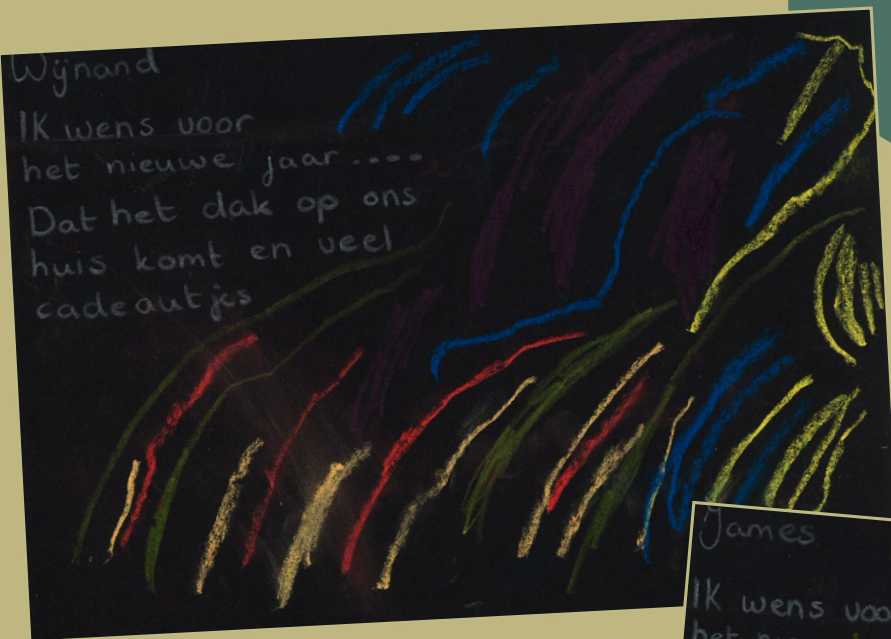 Wijnand
IK wens voor
het nieuwe jaar ....
Dat het dak op ons
huis komt en veel
cadeautjes
James
IK wens voo
het n